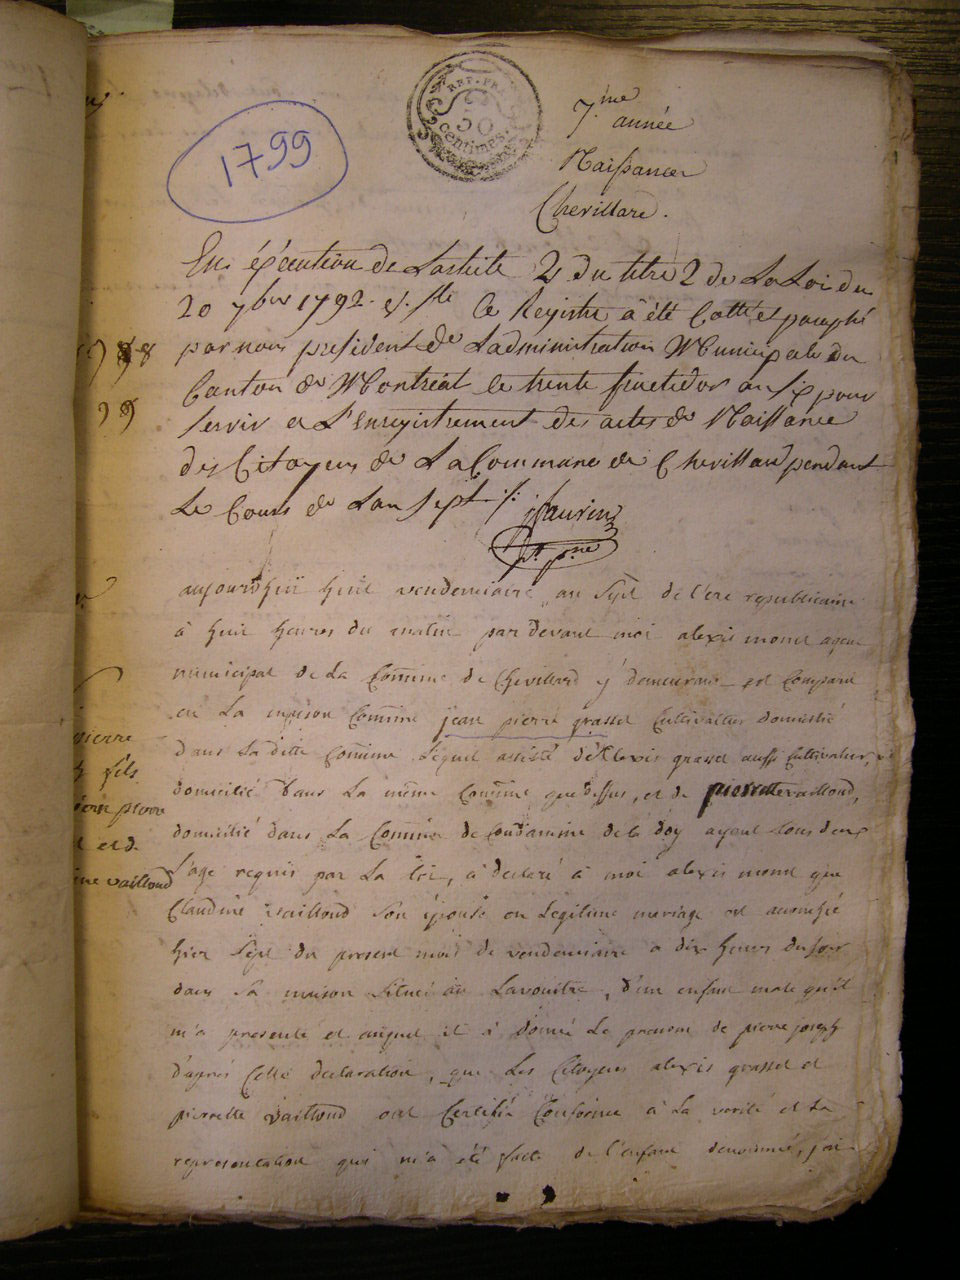 1799
REP. FRA.
50
centimes.
7.ème année
Naissances
Chevillard.
En éxécution de Larticle 2 du titre 2 de La Loi du
20 7bre 1792. v. ste Ce Registre à été Cotté et paraphé
par nous président de Ladministration Municipale du
Canton de Montréal le trente fructidor an six pour
servir a L'enregistrement des actes de Naissance
des Citoyens de La Commune de Chevillard pendant
Le Cours de Lan sept ./.
aujourdhuï huit vendemiaire an sept de l'ere republicaine
à huit heures du matin par devant moi alexis monet agent
municipal de La Comune de Chevillard y demeurant est Comparu
en La maison Comune jean pierre grasset Cultivateur domicilié
dans La ditte Comune Lequel assisté d'Alexis grasset aussi Cultivateur,
domicilié dans La même Comune que dessus, et de pierrette vailloud,
domicilié dans La Comune de Condamine de la doy ayant tous deux
L'age requis par La Loi, à declaré à moi alexis monet que
Claudine vailloud Son épouse en Legitime mariage est accouchée
hier Sept du present mois de vendemiaire a dix heures du soir
dans Sa maison Située au Lavouitre, d'un enfant male qu'il
m'a presenté et auquel il à donné Le prenom de pierre joseph
d'après Cette declaration, que Les Citoyens alexis grasset et
pierrette vailloud ont Certifié Conforme à La verité et La
representation qui m'a été faite de l'enfant denommé, j'ai
pierre
fils
pierre
et de
vailloud